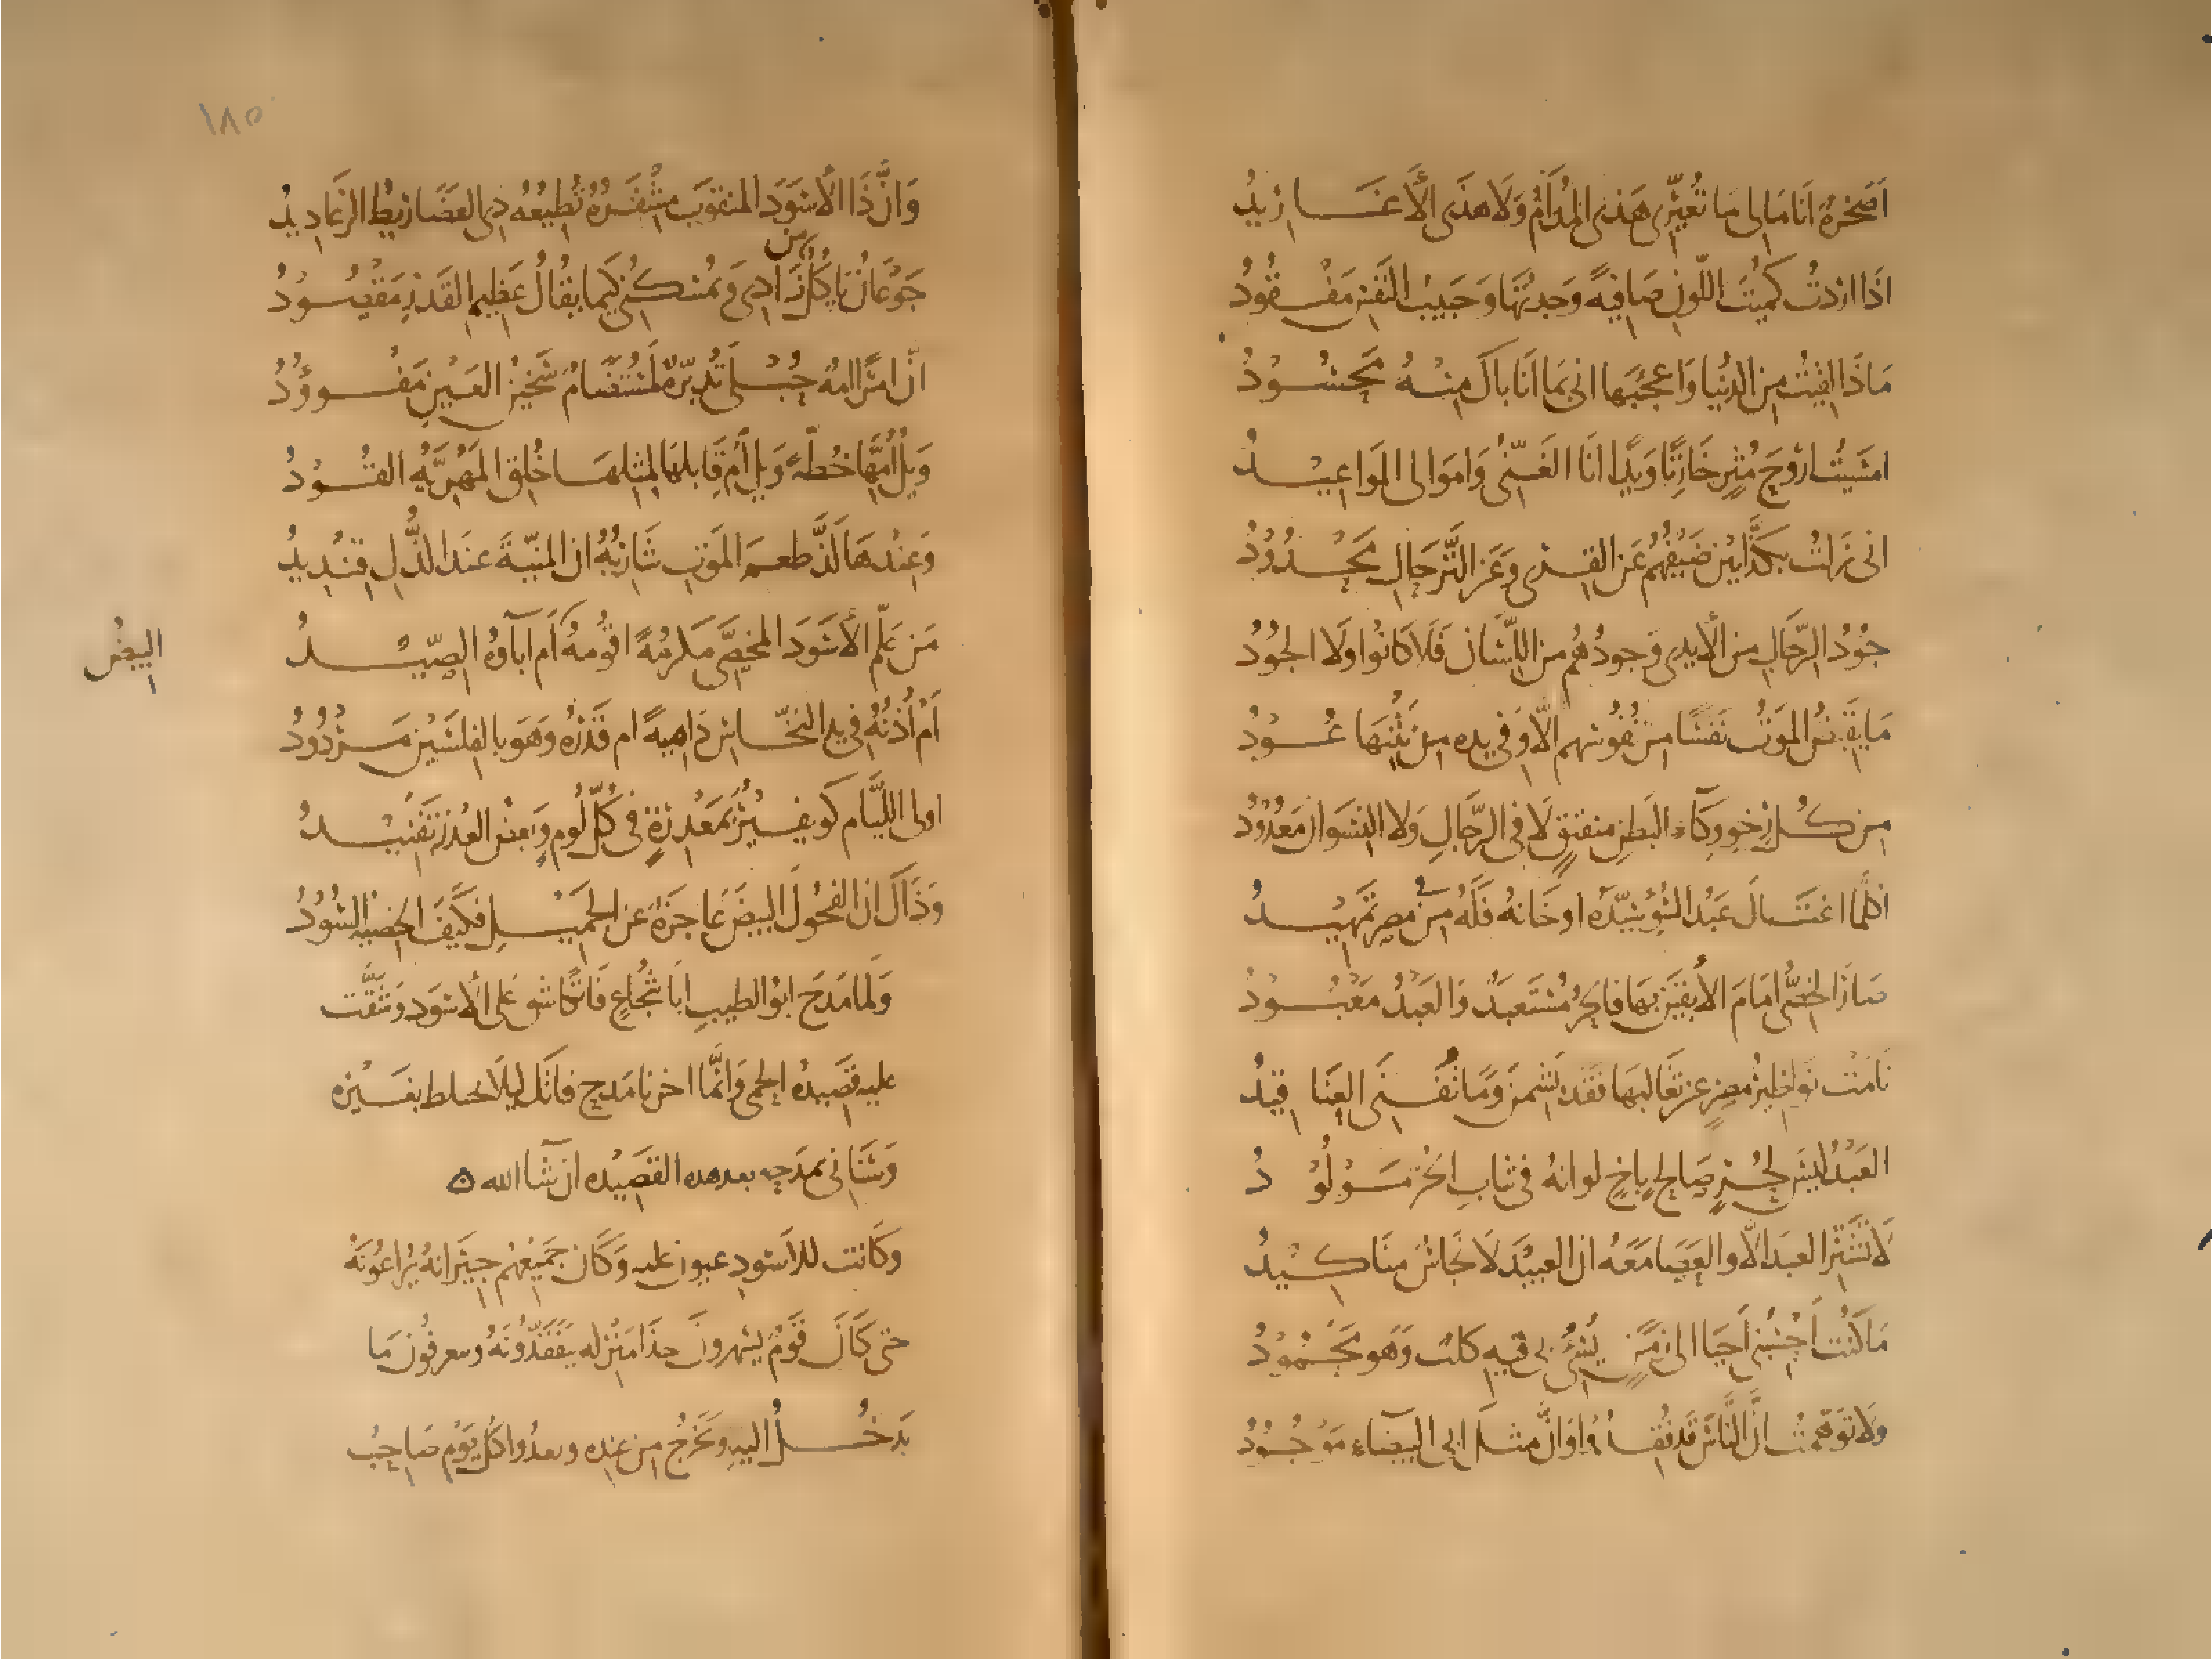 اَصَخرةٌ انَا مَالى مَا تُغيِّرُنى هَذى المُدَامُ وَلَا هذَى الأَغَاريدُ
اذَا اردتُ كمُيتَ اللّونِ صَافيةً وَجدتُهَا وَحَبيبُ النَفسِ مَفْقُودُ
مَاذَا لقيتُ من الدُنيا وَاعجَبهَا انى بمَا انَا باكٍ منْهُ مَحْسُودُ
امسَيتُ اروَحَ مُثرٍ خَازِنًا وَيَدًا انَا الغَنِىُّ وَاموَالى المَوَاعيدُ
انى نزلتُ بكذَّابينَ ضَيفُهُم عَن القِرى وَعَن التَّرحَالِ مَحْدُودُ
جُودُ الرّجَالِ من الأيدى وَجودُهُم من اللّسَان فَلَا كَانوُا وَلَا الجُودُ
مَا يَقبضُ المَوتُ نفسًا من نُفُوسهم الّا وَفى يده من نَتْنِهَا عُودُ
من كُل رخو وِكَآءِ البَطنِ منفتقٍ لَا فى الرّجَالِ وَلا النسوَان مَعْدُودُ
اكلّمَا اغتَالَ عَبْدُ السُّوءِ سَيّدَهُ اوخَانهُ فَلَهُ فى مصر تَمهيدُ
صَارَ الخصىُّ امَامَ الأبقينَ بهَا فالحرُ مُسْتَعبَدٌ وَالعَبْدُ مَعْبُودُ
نَامَتْ نَوَاطيرُ مصرٍ عن ثعَالبهَا فقَد بَشمنَ وَمَا تَفْنَى العنَاقيدُ
العَبْدُ ليسَ لحُرٍّ صَالحٍ بأخٍ لوانهُ فى ثيابِ الحُرّ مَوْلُودُ
لَا تشترِ العبدَ الّا وَالعَصَا مَعَهُ ان العبيْدَ لَانجَاسٌ منَاكيدُ
مَا كُنْتُ احْسَبُنى احيَا الى زمَنٍ يُسئُ بى فيه كلبٌ وَهو مَحْمُودُ
ولَا توَهّمتُ انَّ النَّاسَ قَد فُقدُوا وَانَّ مثلَ ابى البيضَاءِ مَوْجُودُ
١٨٥
وَانَّ ذَا الأسْوَدَ المثقوبَ مشْفَرُهُ تُطيعُهُ ذِى العضَاريطُ الرعَاديدُ
جَوْعَانُ يَاكُلُ من زَادى وَيُمْسكُنى كَيما يقُالُ عَظيمُ القَدرِ مَقْصُودُ
انّ امرًا امَةٌ حُبْلَى تُدبّرُهُ لَمُسْتَضَامٌ سَخينُ العَيْنِ مَفْوؤُدُ
وَيلُمّهَا خُطّةً وَيلُمّ قَابلهَا لمثلهَا خُلقَ المَهْرِيَّةُ القُوْدُ
وَعِنْدهَا لَذَّ طعمَ المَوتِ شَاربُهُ ان المنيّةَ عندَ الذُّلِ قنديدُ
مَن عَلّم الأسوَدَ المخصىَّ مَكرمُةً اقومُهُ
البيضُ
اَم اباَؤهُ الصّيدُ
اَمْ أُذنُهُ فى يد النخّاس دَاميةً ام قَدْرُهُ وَهوَ بالفلسَيْنِ مَرْدُودُ
اولى اللّئَام كوَيفيْرُ بمَعْذرةٍ فى كُلِّ لُومٍ وَبعضُ العُذرِ تَفْنيدُ
وَذَاكَ ان الفحُولَ البيضَ عَاجزَةٌ عَن الجَميلِ فكَيفَ الخصْيَةُ السُّودُ
وَلمَا مَدحَ ابوُ الطيبِ ابَا شُجَاعٍ فَاتكًا شق عَلى الأسوَد وَشَقّت
عليه قصَيدهُ الحمى وَانمَّا اخرنَا مَديح فاتك ليلَا يخلط بغَيْره
وَسَناتى بمَدحِه بعد هذه القصَيْده ان شَآ الله ه
وَكَانت للأسوَدِ عيون عليه وَكَان جَميعُهم جيرَانهُ يُراعُونَهُ
حتى كَانَ قَوْمٌ يسْهرونَ حذَا مَنزله يَتَفَقّدُونَهُ ويعرفُون مَا
يَدخُلُ اليهِ وَيَخرُجُ من عندِه ويعدُوا كُلَّ يَوْمٍ صَاحِبُ